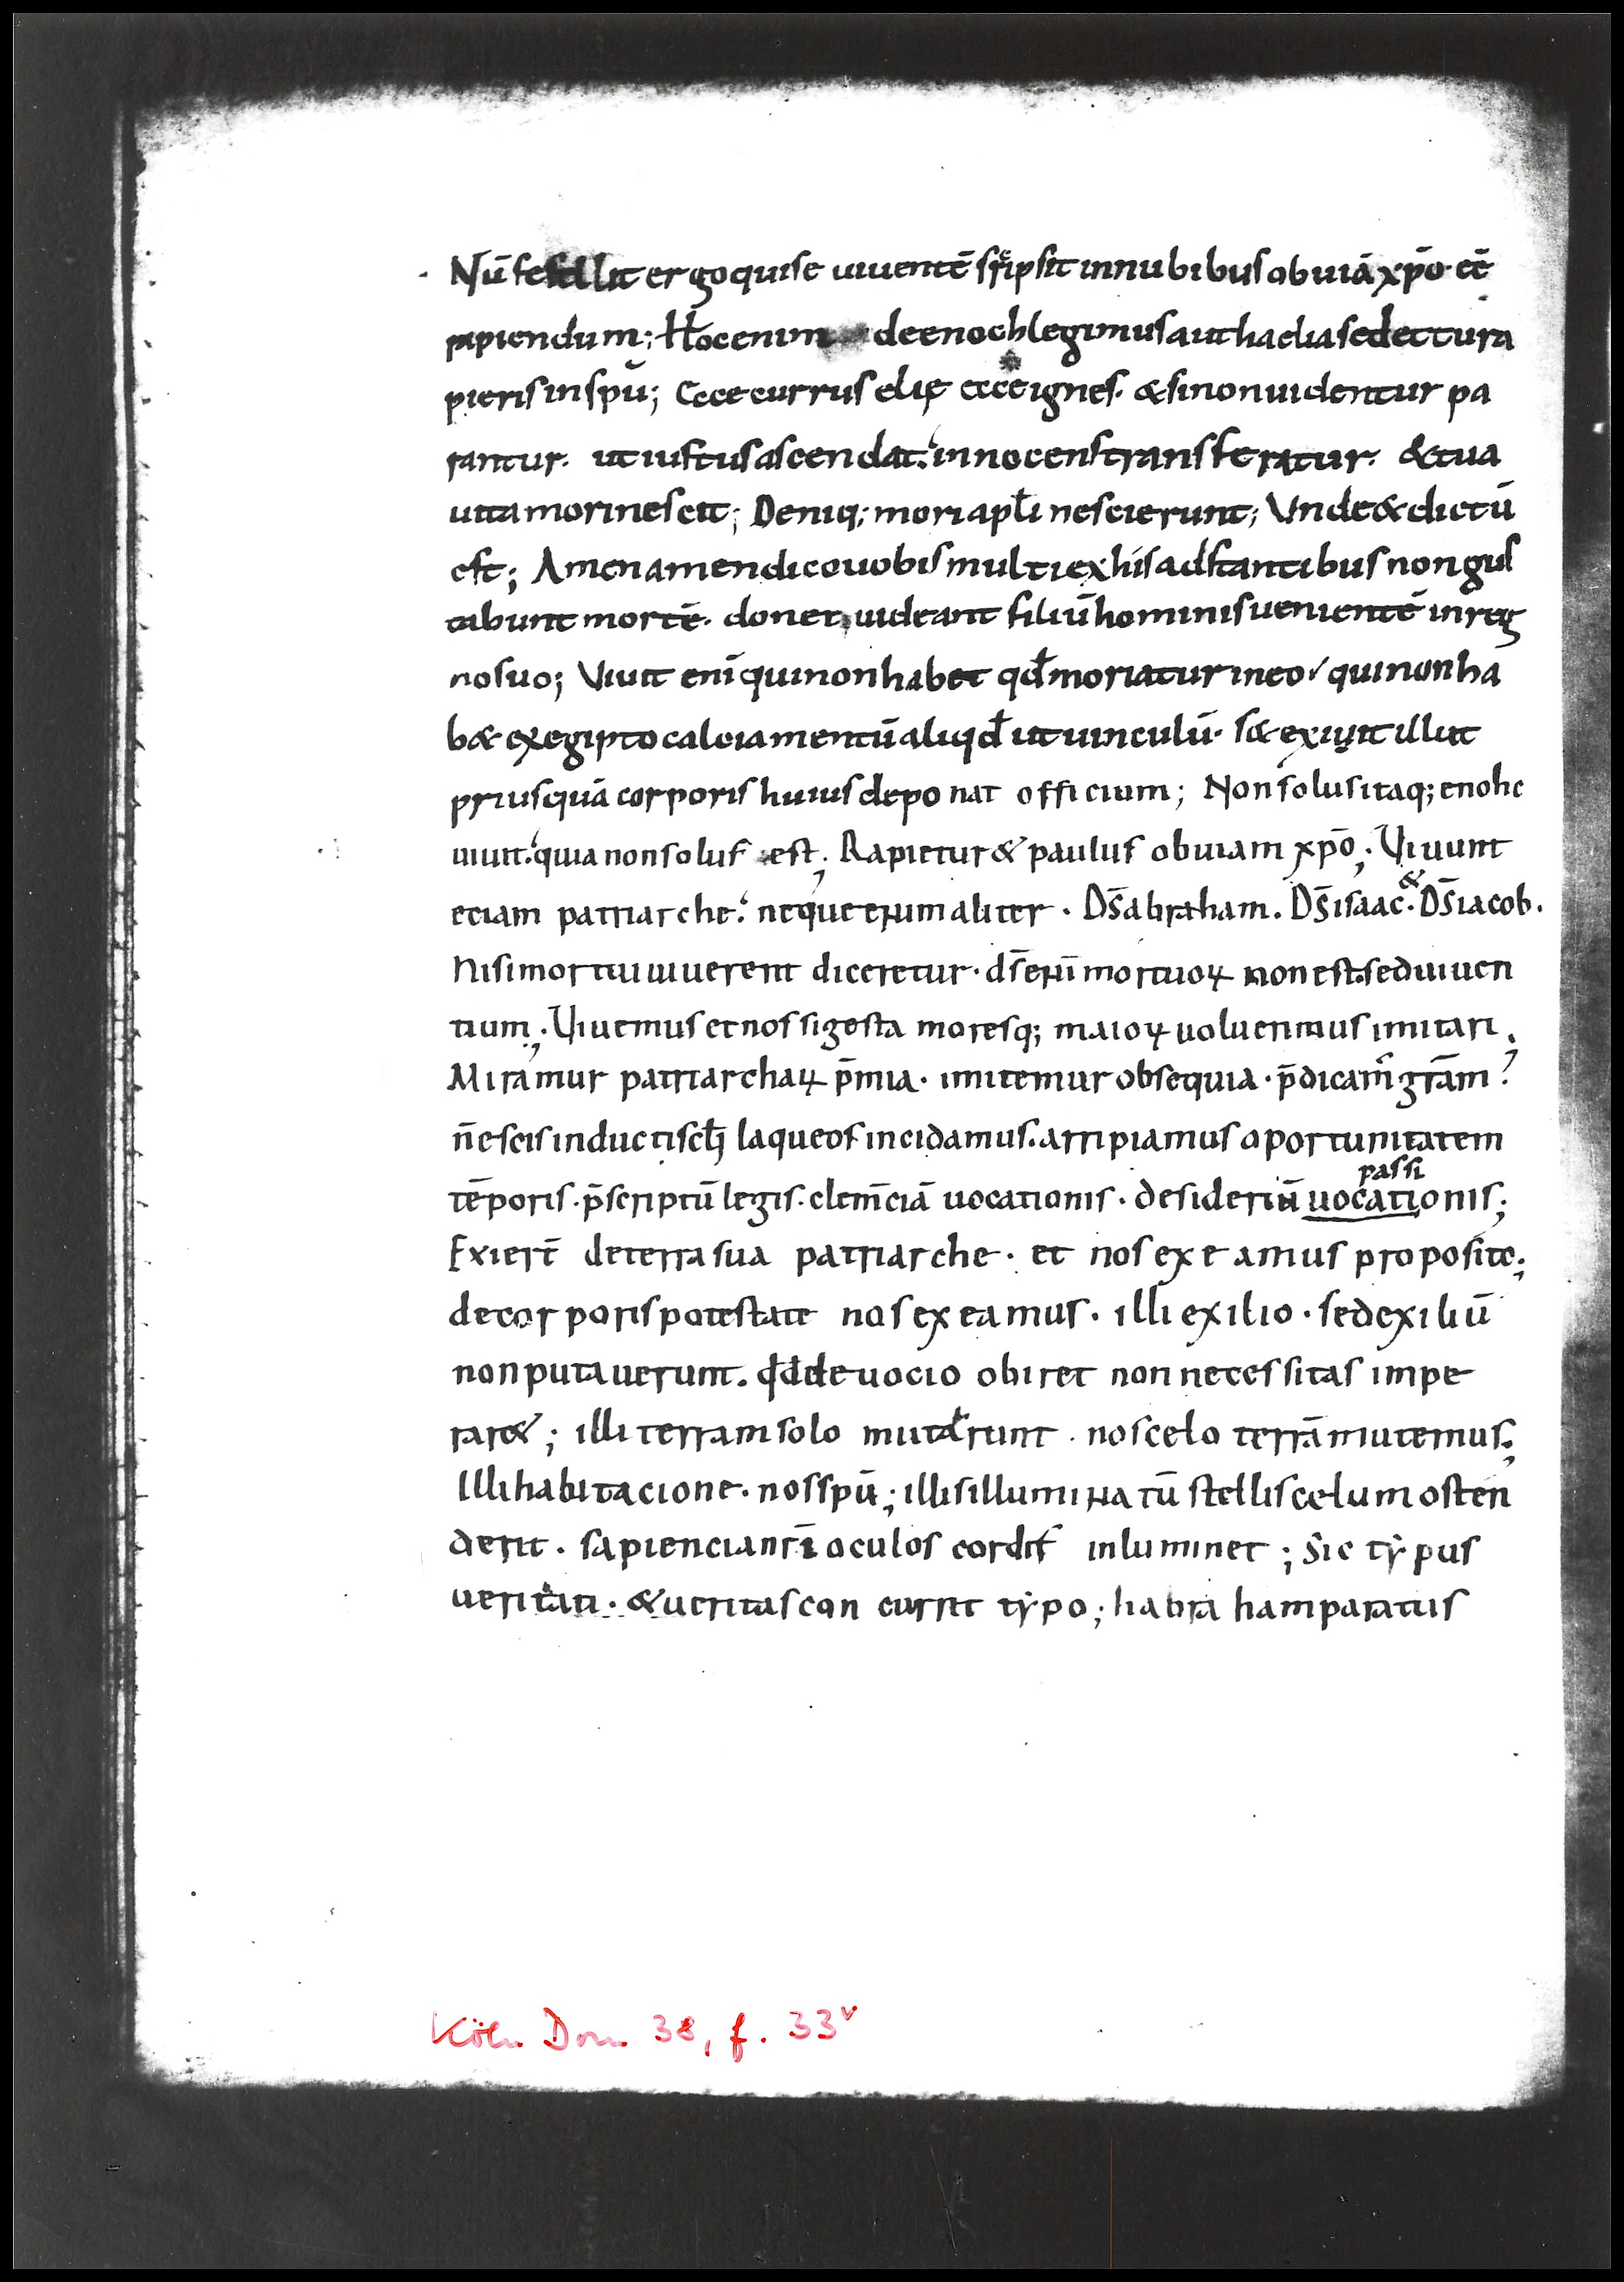 Nū fefellit ergo qui se uiuentē scripsit in nubibus obuiā xp̄o eē
rapiendum; Hoc enim de enoch legimus aut ha elia sed et tu ra
pieris in spū; Ecce currus elię ecce ignes · & si non uidentur pa
rantur · ut iustus ascendat · innocens transferatur · & tua
uita mori nescit; Deniq; mori apłi nescierunt; Vnde & dictū
est; Amen amen dico uobis multi ex his adstantibus non gus
tabunt mortē · donec uideant filiū hominis uenientē in reg
no suo; Viuit enī qui non habet qđ moriatur in eo · qui non ha
b& ex egipto calciamentū aliqđ ut uinculū · s& exiuit illut
priusquā corporis huius deponat officium; Non solus itaq; enohc
uiuit · quia non solus est; Rapietur & paulus obuiam xp̄o; Viuunt
eciam patriarche · neque enim aliter · Ds̄ abraham · Ds̄ isaac · & Ds̄ iacob ·
Nisi mortui uiuerent diceretur · ds̄ enī mortuoꝝ non est · sed uiuen
tium; Viuemus et nos si gesta moresq; maioꝝ uoluerimus imitari;
Miramur patriarchaꝝ p̄mia · imitemur obsequia · p̄dicam̄ grām
n̄escis inducti laqueos incidamus · arripiamus oportunitatem
tēporis · p̄scriptū legis · clem̄ciā uocationis · desideriū uocationis;
passi
Exiert̄ de terra sua patriarche · et nos exeamus proposite;
de corporis potestate nos exeamus · illi exilio · sed exiliū
non putauerunt · qđ deuocio obiret non necessitas impe
rar&; illi terram solo mutarunt · nos celo terrā mutemus;
Illi habitacione · nos spū; illis illuminatū stellis celum osten
derit · sapiencia nr̄i oculos cordis inluminet; Sic typus
ueritati · & ueritas concurrit typo; habraham paratus
Köln Dom 38, f. 33v